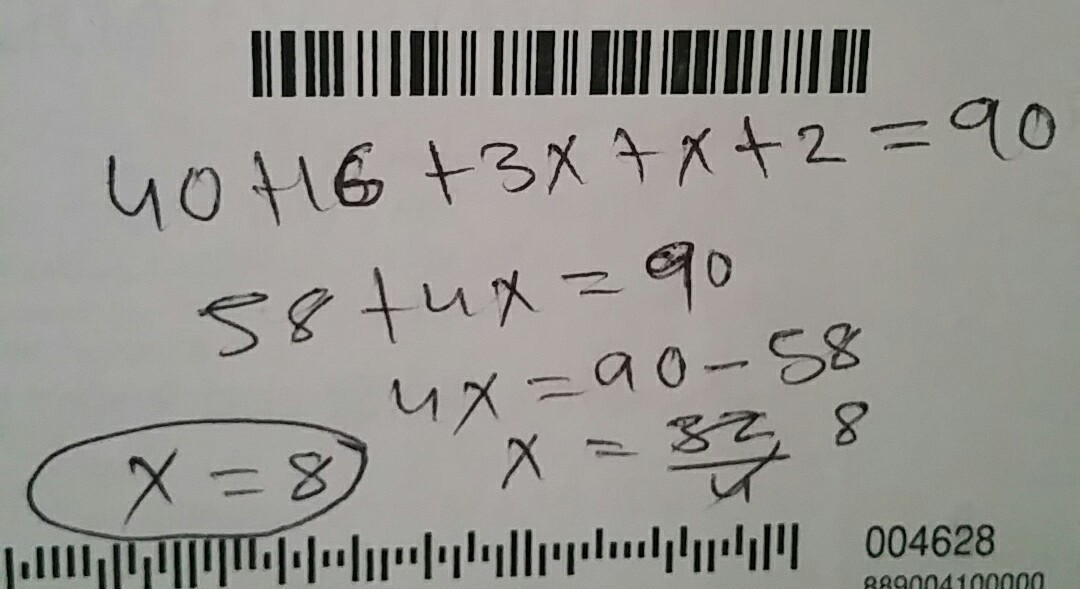 40+16+3x+x+2=90
58+4x=90
4x=90-58
x=32/4 8
x=8
004628
889004100000